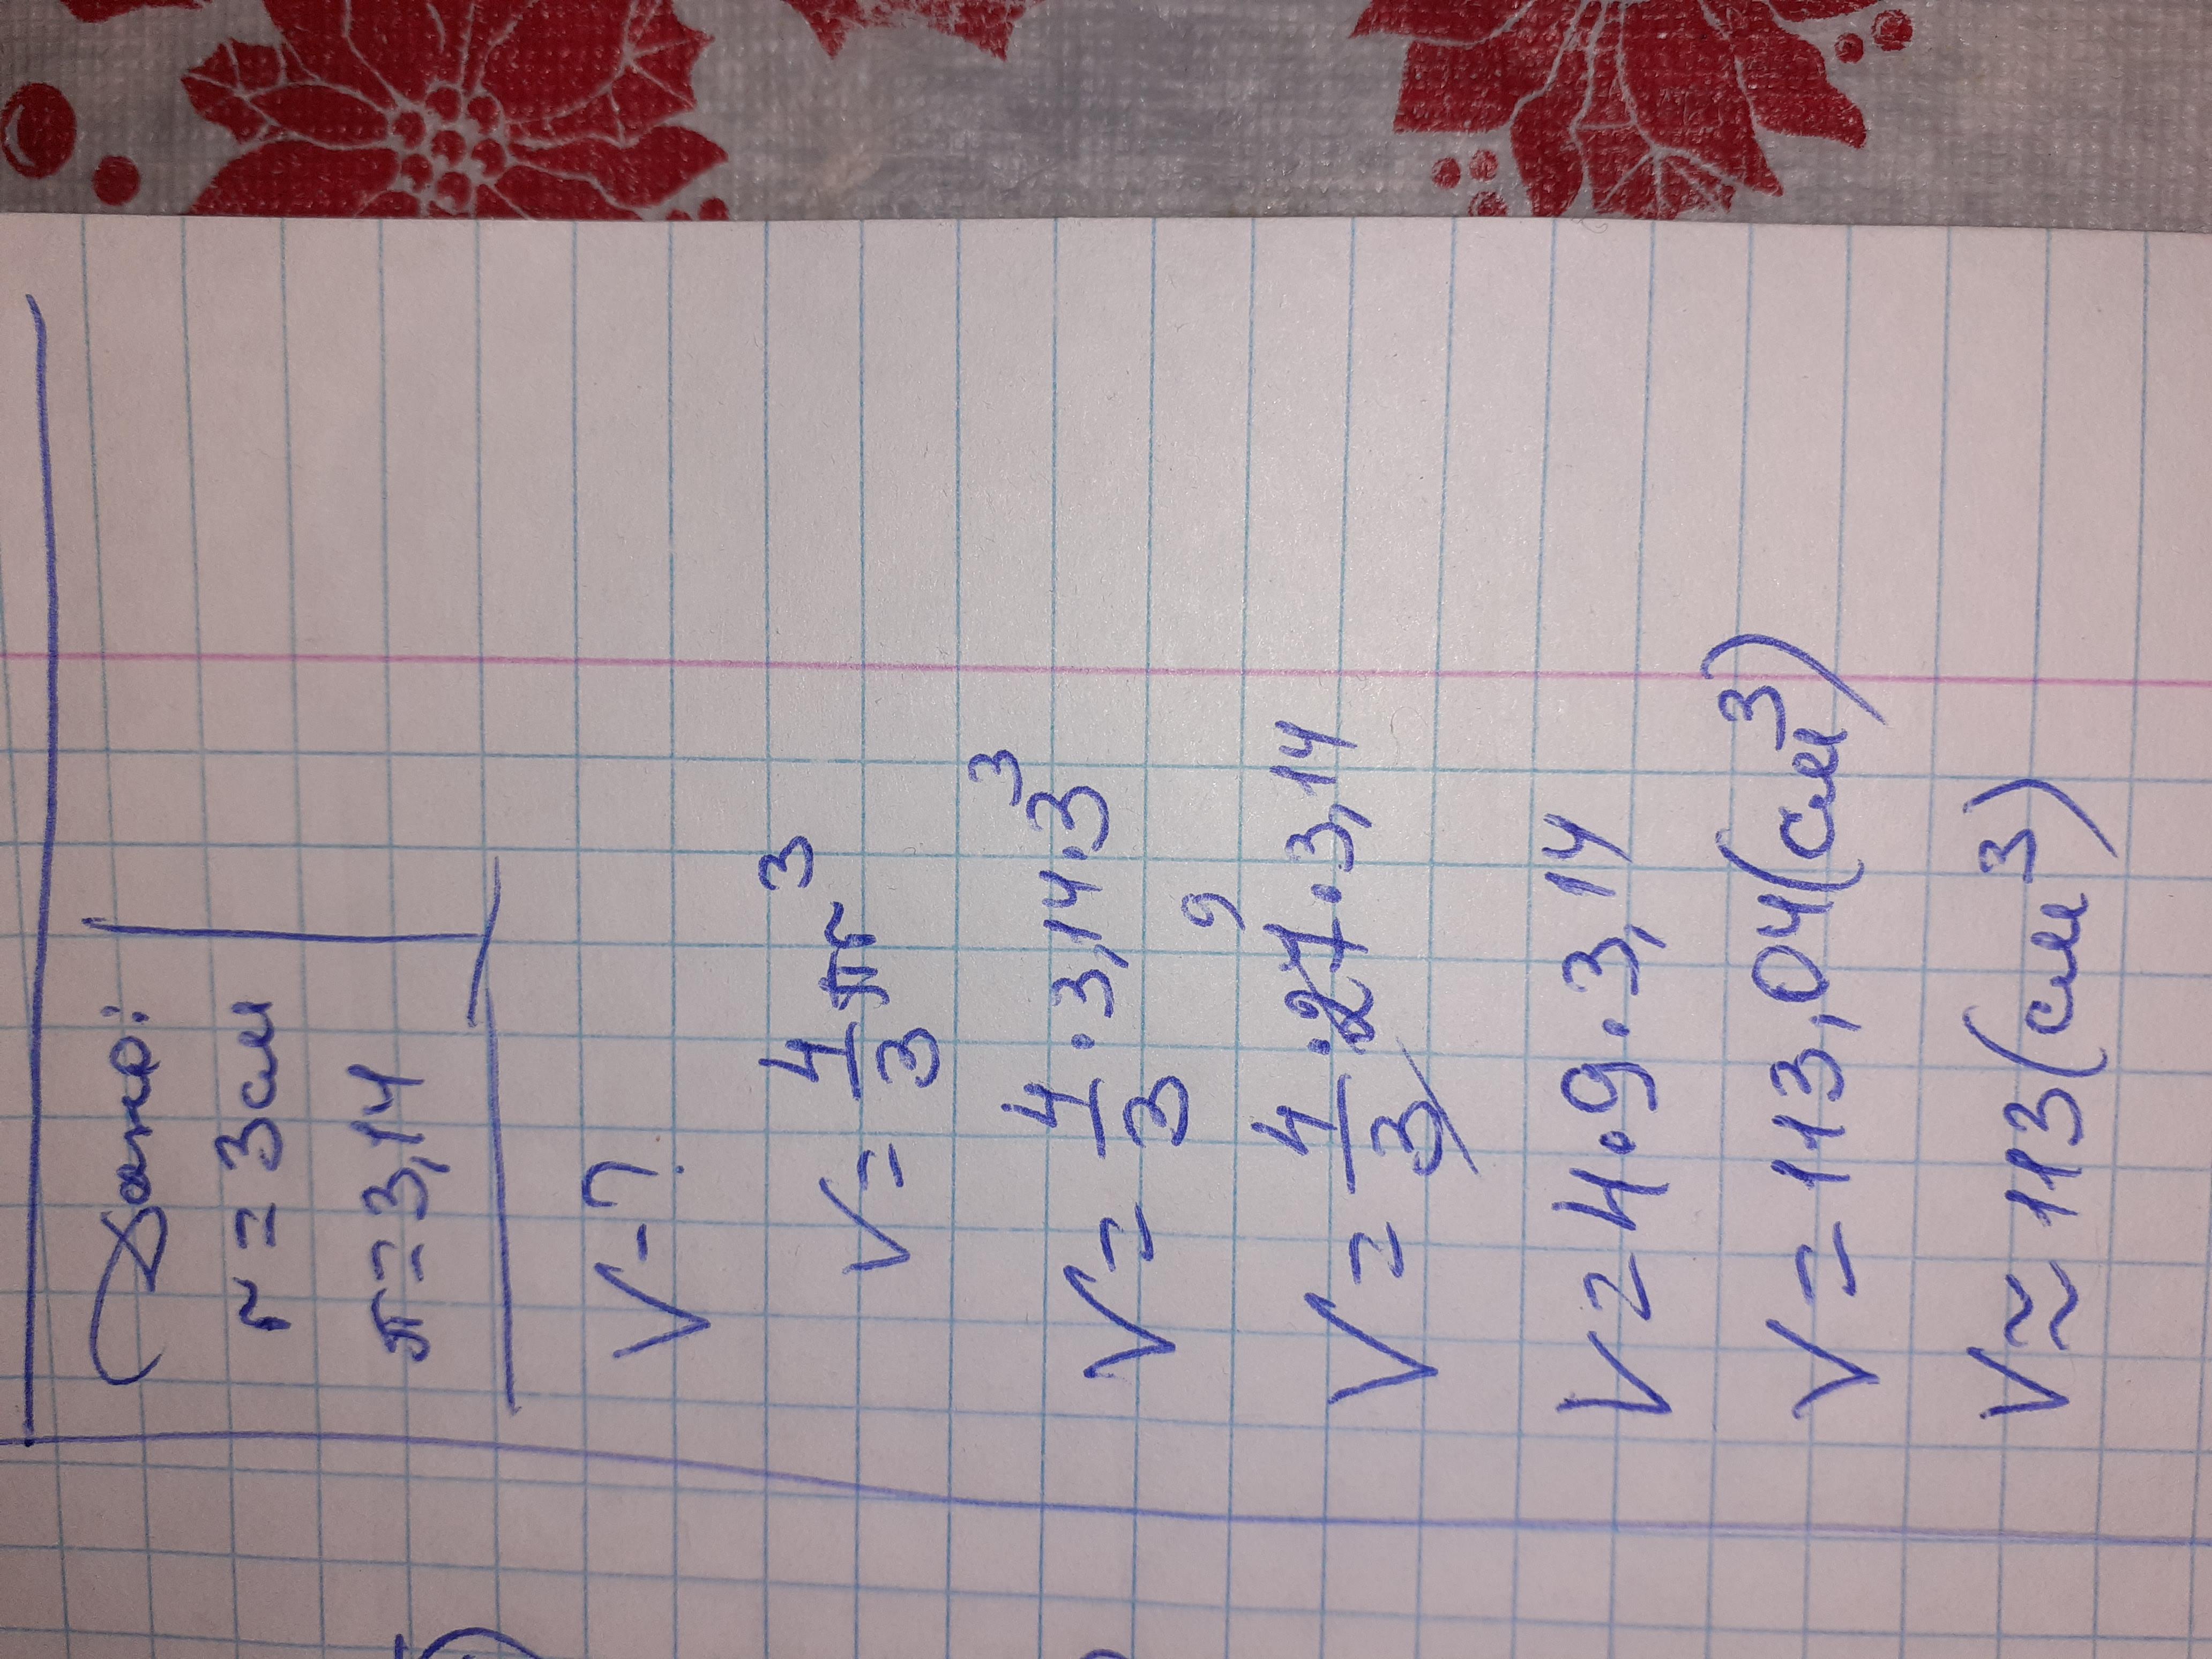 Дано:
r = 3 см
π = 3,14
V - ?
V = 4/3 πr³
V = 4/3 · 3,14 · 3³
V = 4/3 · 27 · 3,14
9
V = 4 · 9 · 3,14
V = 113,04 (см³)
V ≈ 113 (см³)